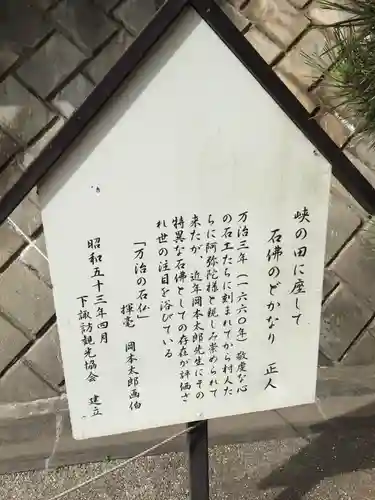 峡の田に座して
石佛のどかなり　正人
万治三年（一六六〇年）敬虔な心
の石工たちに刻まれてから村人た
ちに阿弥陀様と親しみ崇められて
来たが　近年岡本太郎先生にその
特異な石佛としての存在が評価さ
れ世の注目を浴びている
「万治の石仏」
揮毫　岡本太郎画伯
昭和五十三年四月
下諏訪観光協会　建立